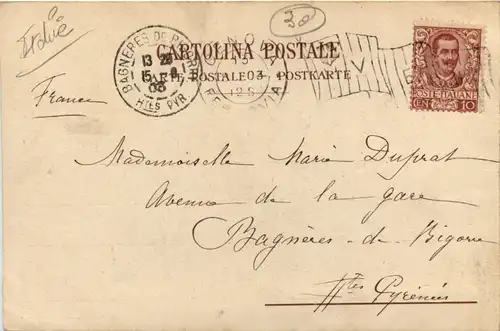 Italie
38
CARTOLINA POSTALE
CARTE POSTALE POSTKARTE
BAGNERES DE BIGORRE
13 20
15 - 9
03
HTES PYR
GENOVA
15
03
12 S
FERROVIA
POSTE ITALIANE
CEN 10
France
Mademoiselle Marie Duprat
Avenue de la gare
Bagnères-de-Bigorre
Htes Pyrénées